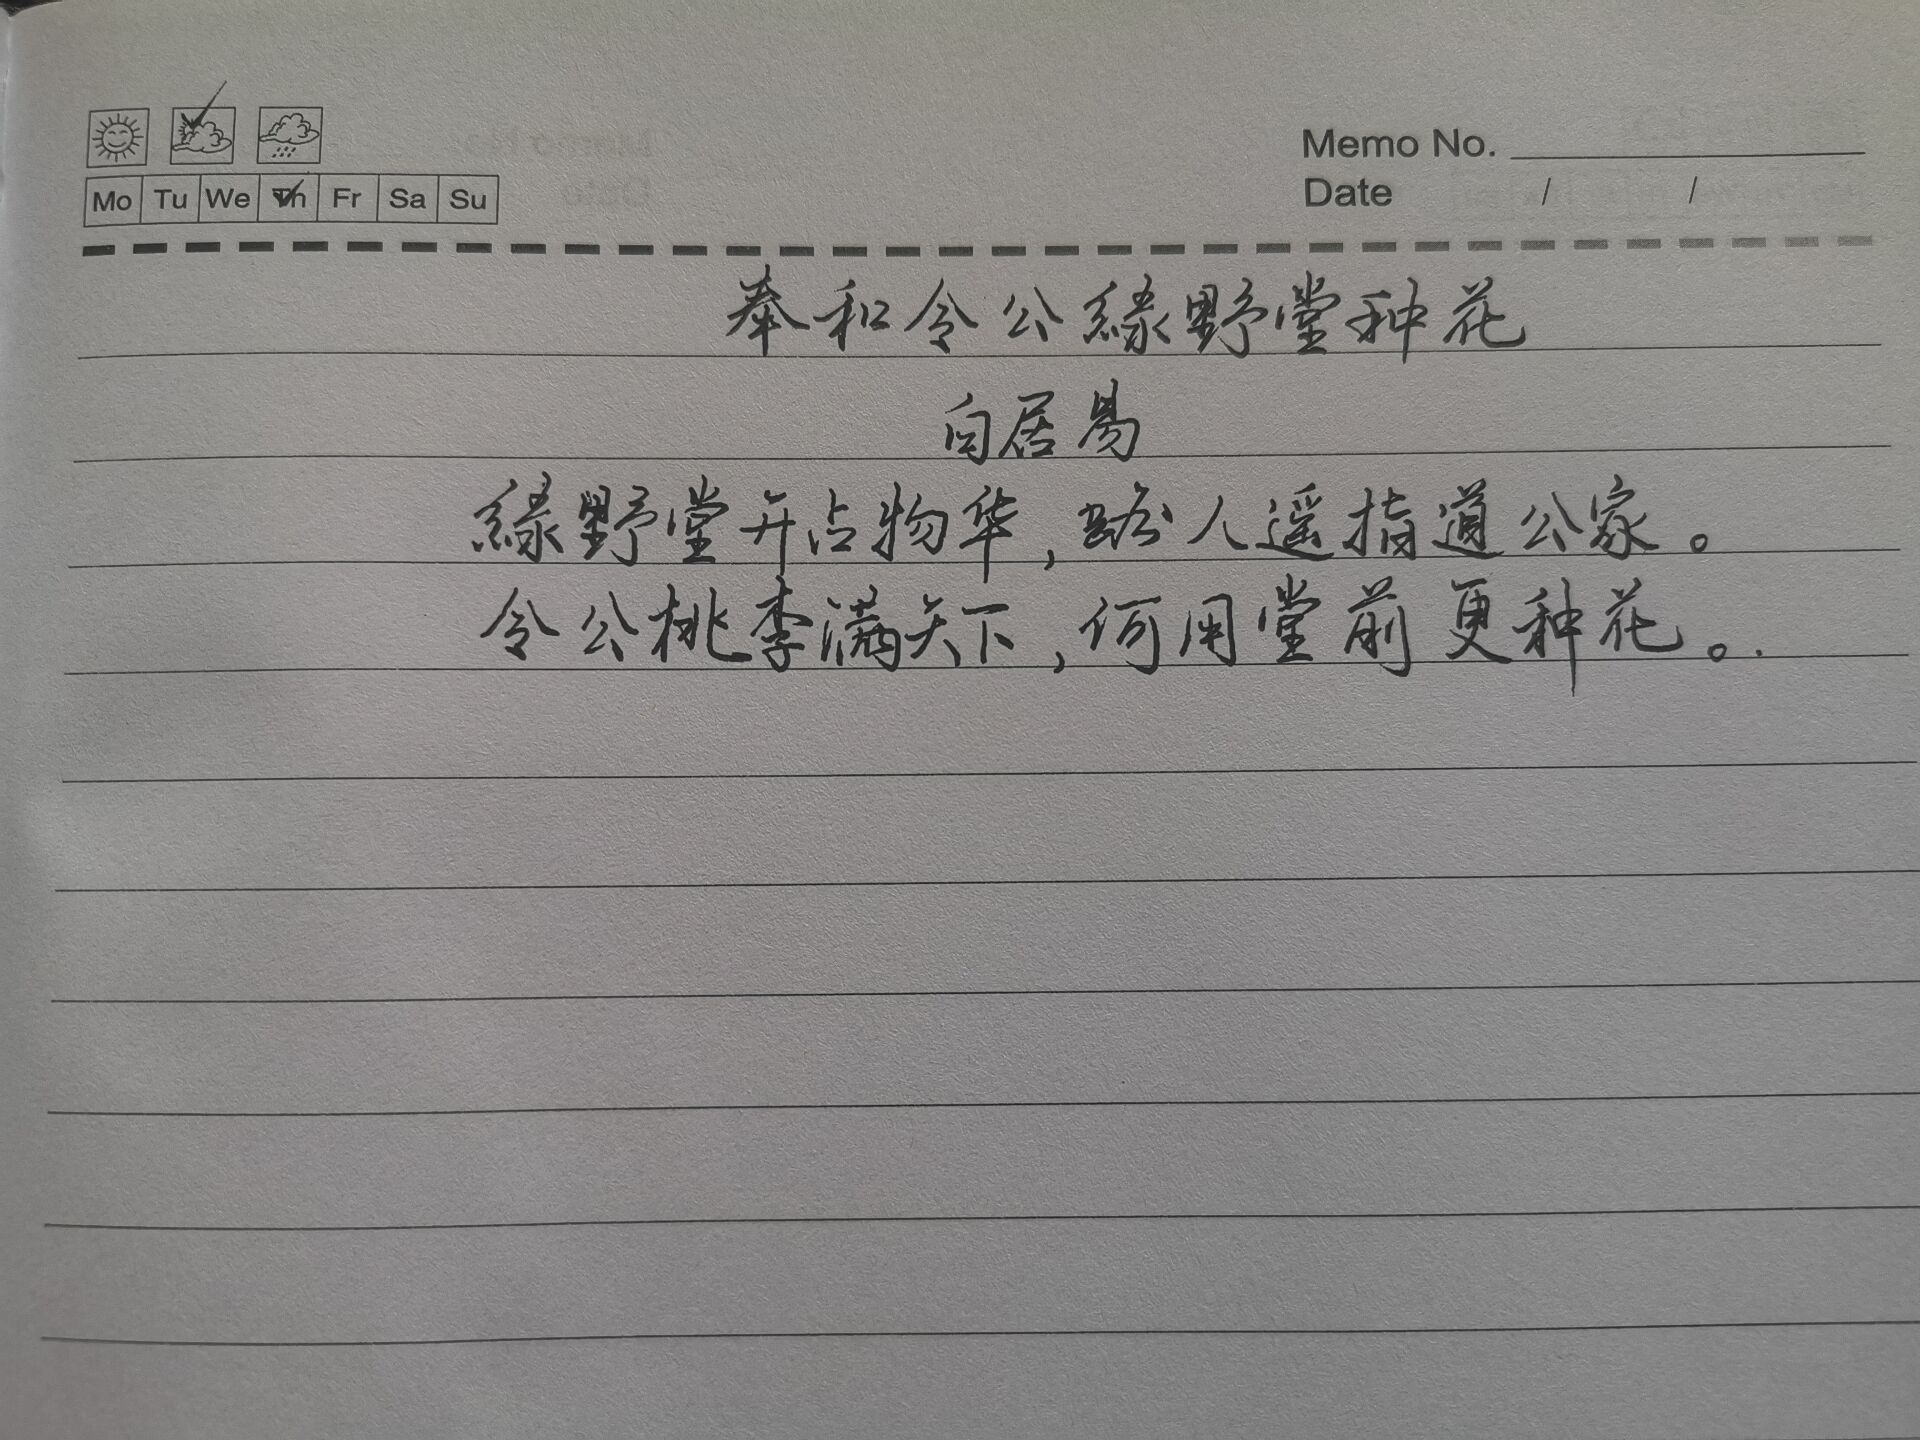 Memo No.
Mo Tu We Th Fr Sa Su
Date / /
奉和令公緑野堂种花
白居易
緑野堂开占物华,路人遥指道公家。
令公桃李满天下,何用堂前更种花。.